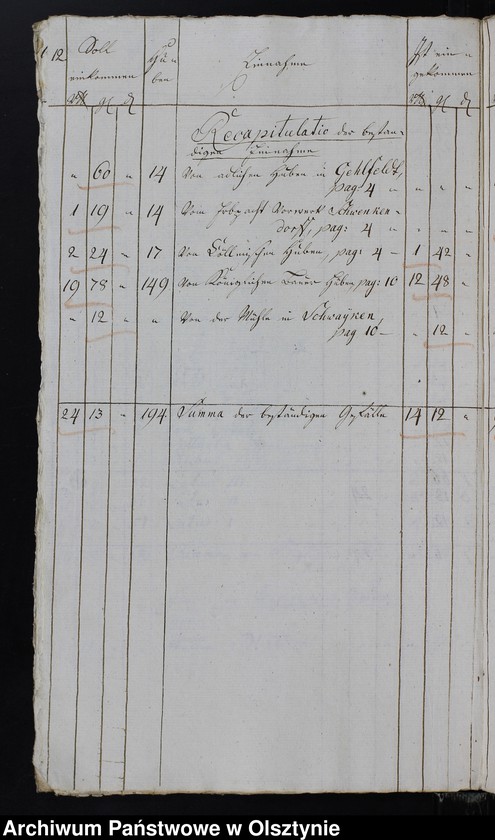 12 Soll Hu Einnahme Ist ein
einkommen ben gekommen
Rthl gl d Rthl gl d
Recapitulatio der bestän-
digen Einnahme
" 60 " 14 Von adlichen Huben in Gehlfeldt,
pag 4 " " "
1 19 " 14 Vom Erbpacht Vorwerk Schwenken-
dorff, pag: 4 " " "
2 24 " 17 Von Cöllmischen Huben, pag: 4 1 42 "
19 78 " 149 Von Königlichen Bauer Huben pag: 10 12 48 "
" 12 " " Von der Mühle in Schwayken,
pag 10 " 12 "
24 13 " 194 Summa der beständigen Gefälle 14 12 "
Archiwum Państwowe w Olsztynie